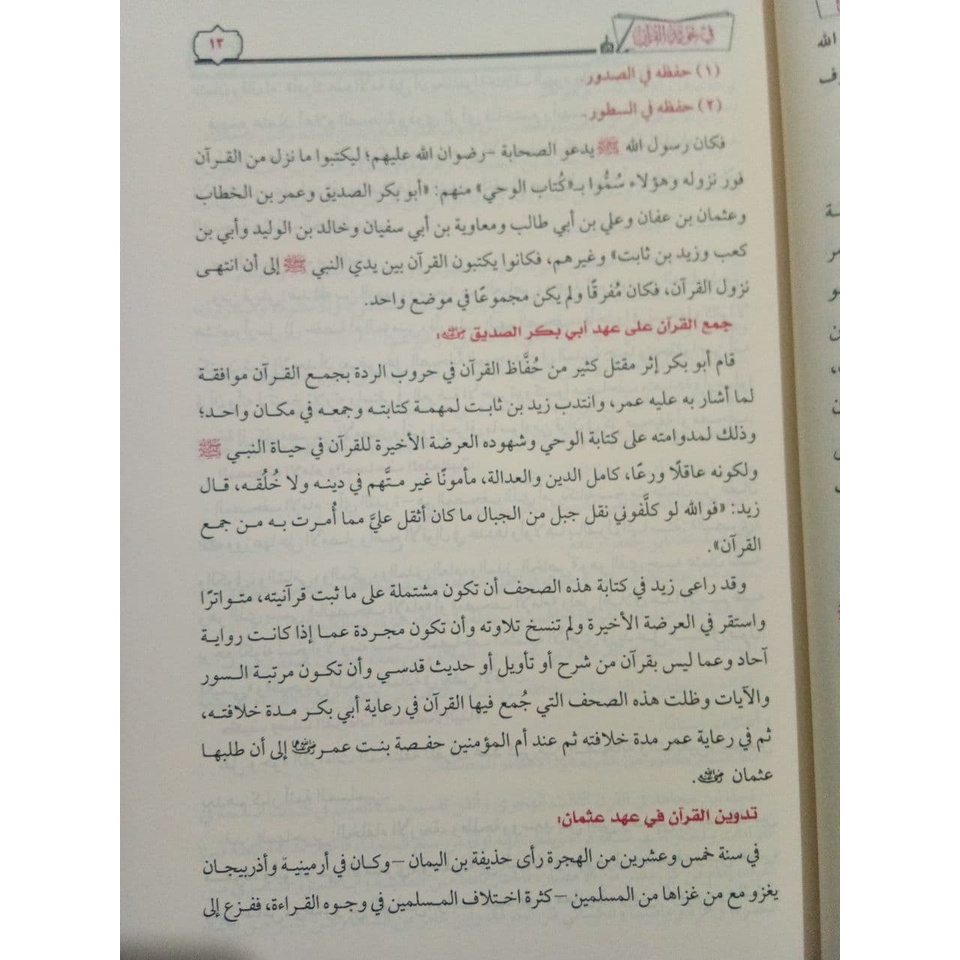 ١٣
(١) حفظه في الصدور.
(٢) حفظه في السطور.
فكان رسول الله ﷺ يدعو الصحابة -رضوان الله عليهم؛ ليكتبوا ما نزل من القرآن
فور نزوله وهؤلاء سُمُّوا بـ«كُتاب الوحي» منهم: «أبو بكر الصديق وعمر بن الخطاب
وعثمان بن عفان وعلي بن أبي طالب ومعاوية بن أبي سفيان وخالد بن الوليد وأبي بن
كعب وزيد بن ثابت» وغيرهم، فكانوا يكتبون القرآن بين يدي النبي ﷺ إلى أن انتهى
نزول القرآن، فكان مُفرقًا ولم يكن مجموعًا في موضع واحد.
جمع القرآن على عهد أبي بكر الصديق رضي الله عنه:
قام أبو بكر إثر مقتل كثير من حُفَّاظ القرآن في حروب الردة بجمع القرآن موافقة
لما أشار به عليه عمر، وانتدب زيد بن ثابت لمهمة كتابته وجمعه في مكان واحد؛
وذلك لمداومته على كتابة الوحي وشهوده العرضة الأخيرة للقرآن في حياة النبي ﷺ
ولكونه عاقلًا ورعًا، كامل الدين والعدالة، مأمونًا غير متَّهم في دينه ولا خُلُقه، قال
زيد: «فوالله لو كلَّفوني نقل جبل من الجبال ما كان أثقل عليَّ مما أُمرت به من جمع
القرآن».
وقد راعى زيد في كتابة هذه الصحف أن تكون مشتملة على ما ثبت قرآنيته، متواترًا
واستقر في العرضة الأخيرة ولم تنسخ تلاوته وأن تكون مجردة عما إذا كانت رواية
آحاد وعما ليس بقرآن من شرح أو تأويل أو حديث قدسي وأن تكون مرتبة السور
والآيات وظلت هذه الصحف التي جُمع فيها القرآن في رعاية أبي بكر مدة خلافته،
ثم في رعاية عمر مدة خلافته ثم عند أم المؤمنين حفصة بنت عمر رضي الله عنهما إلى أن طلبها
عثمان رضي الله عنه.
تدوين القرآن في عهد عثمان:
في سنة خمس وعشرين من الهجرة رأى حذيفة بن اليمان –وكان في أرمينية وأذربيجان
يغزو مع من غزاها من المسلمين– كثرة اختلاف المسلمين في وجوه القراءة، ففزع إلى